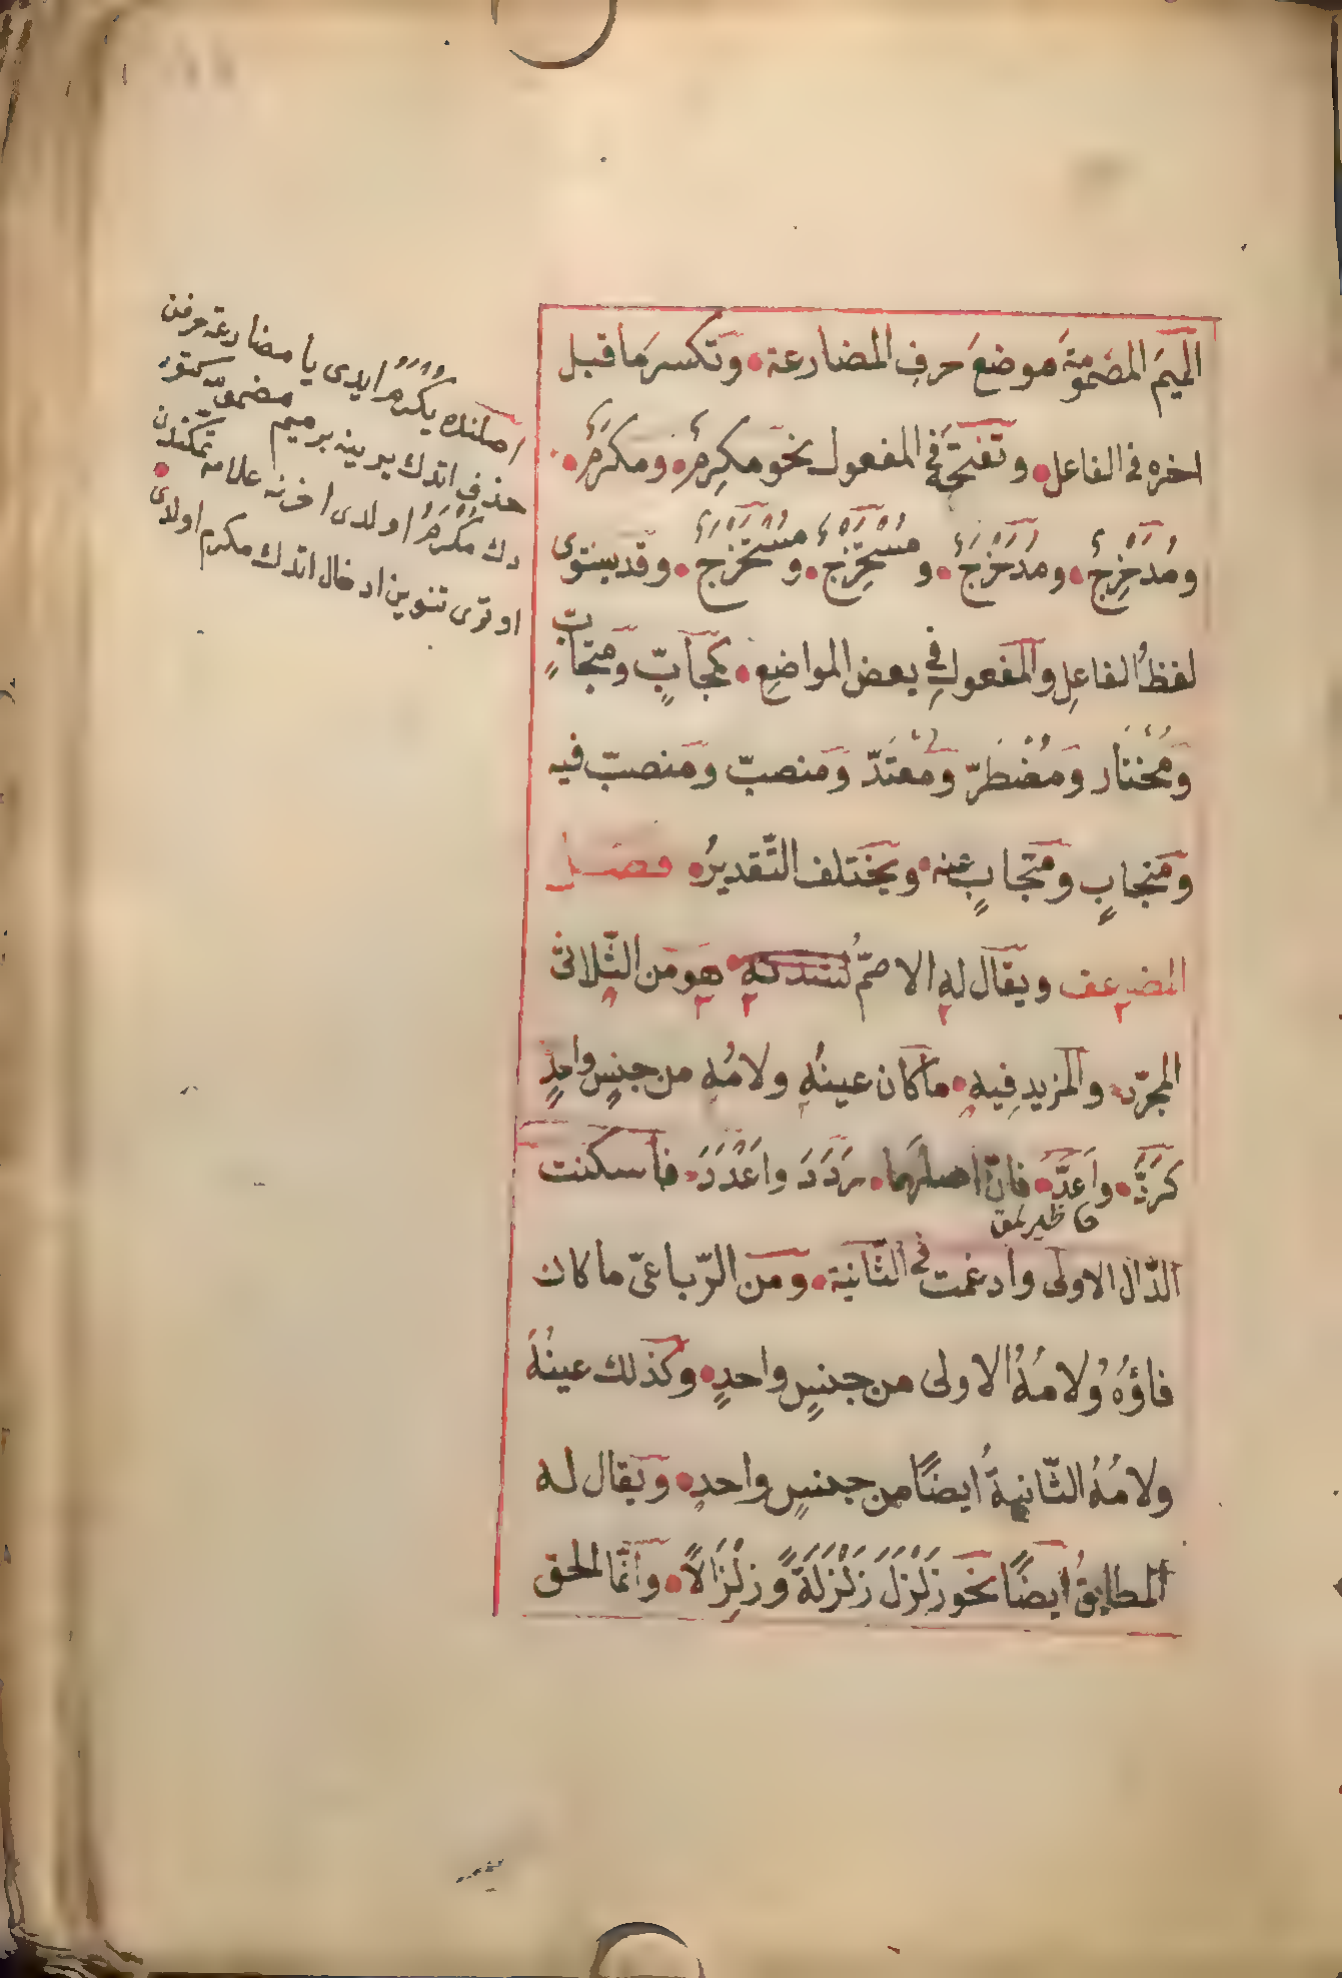 الميمَ المضمومةَ موضعَ حرفِ المضارعة وتكسر ما قبل
اخره فى الفاعل وتفتحهُ فى المفعول نحو مكرِمٌ ومكرَمٌ
ومُدَحْرِجٌ ومُدَحْرَجٌ ومُسْتَخْرِجٌ ومُسْتَخْرَجٌ وقد يستوى
لفظُ الفاعِلِ والمفعولِ فى بعض المواضعِ كمحآبٍّ ومتحآبٍّ
ومُخْتَار ومُضْطَرّ ومُعْتَدّ ومنصبّ ومنصبّ فيه
ومنجابٍ ومنجابٍ عنه ويختلف التّقديرُ فصل
المضاعف ويقال له الاصمُّ لشدته هو من الثّلاثىّ
المجرّد والمزيدِ فيهِ ما كان عينُهُ ولامُهُ من جنسٍ واحدٍ
كرَدَّ واَعَدَّ فانّ اصلهما رَدَدَ واَعْدَدَ فأسكنت
الدّال الاولى وادغمت فى الثّانية ومن الرّباعىّ ما كان
فاؤهُ ولامُهُ الاولى من جنسٍ واحدٍ وكذلك عينُهُ
ولامُهُ الثّانيةُ ايضًا من جنسٍ واحدٍ ويقال له
المطابقُ ايضًا نحو زَلْزَلَ زَلْزَلَةً وزِلْزَالًا وانّما الحق
اصلنده يُكْرَمُ ايدى يا مضارعة حرفن
حذف اتدك يرينه بر ميم مضموم كتوردك
مُكْرَمُ اولدى اخرنه علامة تمكندن
اوترى تنوين ادخال اتدك مكرم اولدى